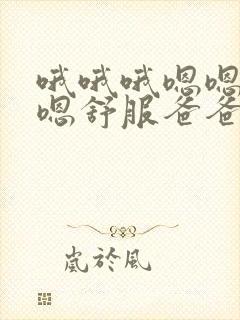 哦哦哦嗯嗯
嗯舒服爸爸
岚於风